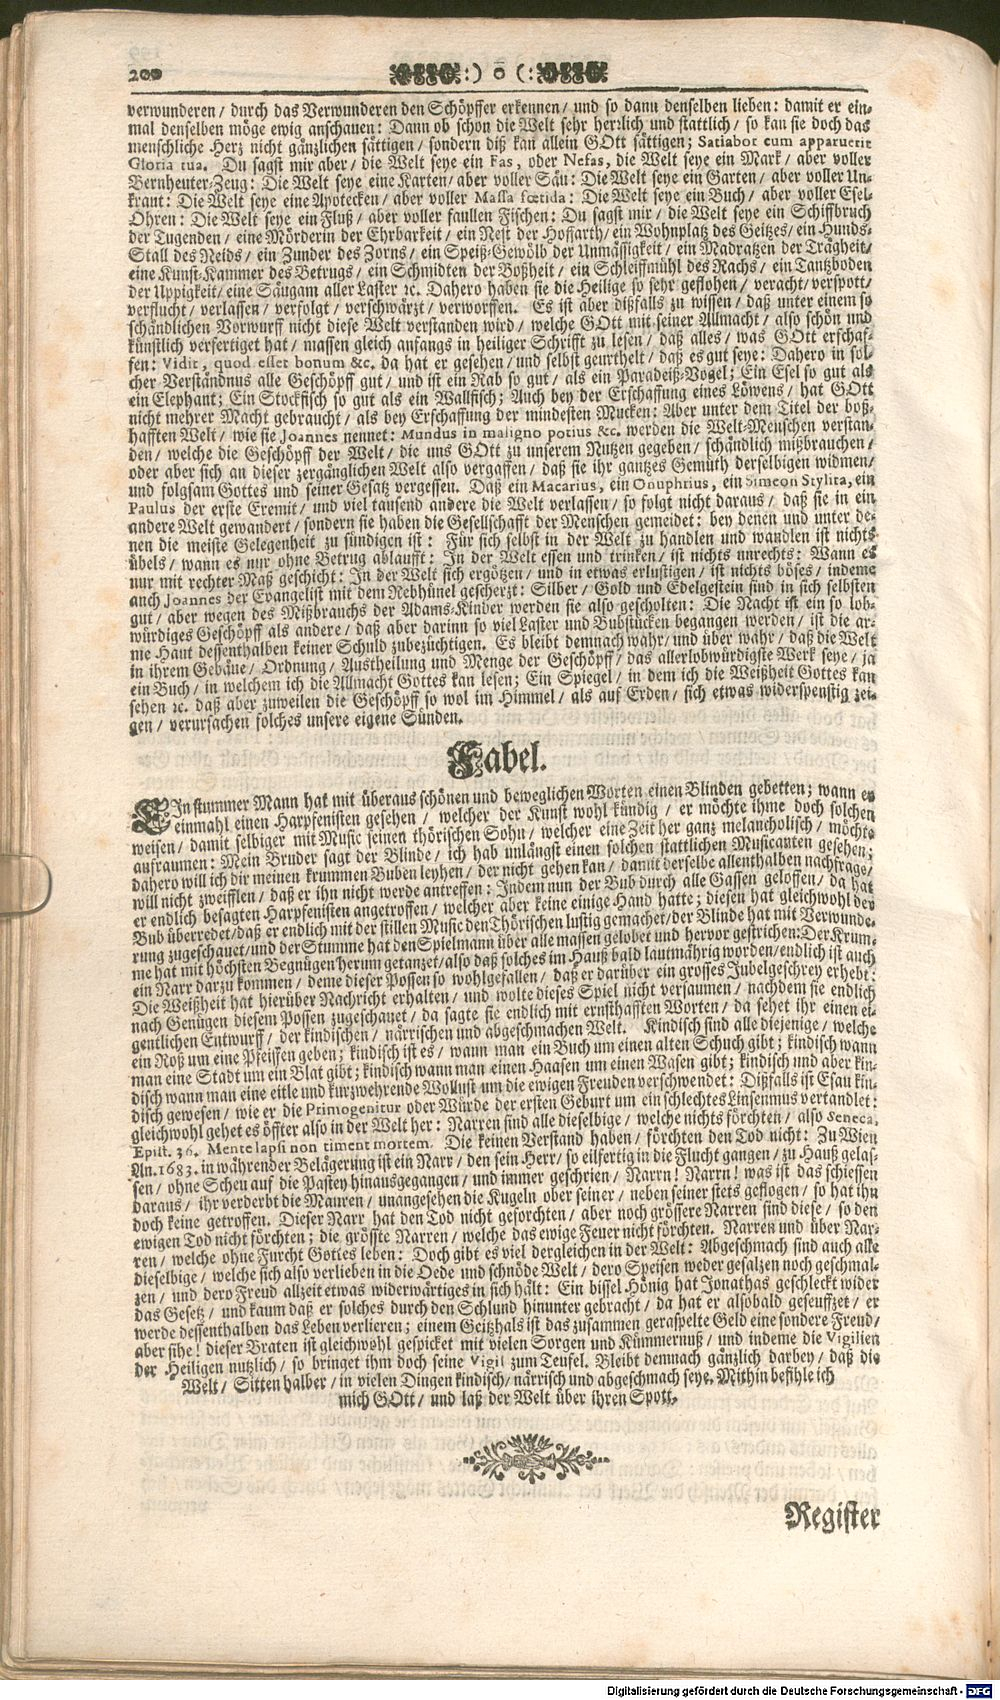 200 :) o (:
verwunderen / durch das Verwunderen den Schöpffer erkennen / und so dann denselben lieben: damit er ein-
mal denselben möge ewig anschauen: Dann ob schon die Welt sehr herrlich und stattlich / so kan sie doch das
menschliche Herz nicht gänzlichen sättigen / sondern diß kan allein GOtt sättigen; Satiabor cum apparuerit
Gloria tua. Du sagst mir aber / die Welt seye ein Fas, oder Nefas, die Welt seye ein Mark / aber voller
Bernheuter-Zeug: Die Welt seye eine Karten / aber voller Säu: Die Welt seye ein Garten / aber voller Un-
kraut: Die Welt seye eine Apotecken / aber voller Massa fœtida: Die Welt seye ein Buch / aber voller Esel-
Ohren: Die Welt seye ein Fluß / aber voller faullen Fischen: Du sagst mir / die Welt seye ein Schiffbruch
der Tugenden / eine Mörderin der Ehrbarkeit / ein Nest der Hoffarth / ein Wohnplatz des Geitzes / ein Hunds-
Stall des Neids / ein Zunder des Zorns / ein Speiß-Gewölb der Unmässigkeit / ein Madratzen der Trägheit /
eine Kunst-Kammer des Betrugs / ein Schmidten der Boßheit / ein Schleiffmühl des Rachs / ein Tantzboden
der Uppigkeit / eine Säugam aller Laster ꝛc. Dahero haben sie die Heilige so sehr geflohen / veracht / verspott /
verflucht / verlassen / verfolgt / verschwärzt / verworffen. Es ist aber dißfalls zu wissen / daß unter einem so
schändlichen Vorwurff nicht diese Welt verstanden wird / welche GOtt mit seiner Allmacht / also schön und
künstlich verfertiget hat / massen gleich anfangs in heiliger Schrifft zu lesen / daß alles / was GOtt erschaf-
fen: Vidit, quod esset bonum &c. da hat er gesehen / und selbst geurthelt / daß es gut seye: Dahero in sol-
cher Verständnus alle Geschöpff gut / und ist ein Rab so gut / als ein Paradeiß-Vogel; Ein Esel so gut als
ein Elephant; Ein Stockfisch so gut als ein Wallfisch; Auch bey der Erschaffung eines Löwens / hat GOtt
nicht mehrer Macht gebraucht / als bey Erschaffung der mindesten Mucken: Aber unter dem Titel der boß-
hafften Welt / wie sie Joannes nennet: Mundus in maligno potius &c. werden die Welt-Menschen verstan-
den / welche die Geschöpff der Welt / die uns GOtt zu unserem Nutzen gegeben / schändlich mißbrauchen /
oder aber sich an dieser zergänglichen Welt also vergaffen / daß sie ihr gantzes Gemüth derselbigen widmen /
und folgsam Gottes und seiner Gesatz vergessen. Daß ein Macarius, ein Onuphrius, ein Simeon Stylita, ein
Paulus der erste Eremit / und viel tausend andere die Welt verlassen / so folgt nicht daraus / daß sie in ein
andere Welt gewandert / sondern sie haben die Gesellschafft der Menschen gemeidet: bey denen und unter de-
nen die meiste Gelegenheit zu sündigen ist: Für sich selbst in der Welt zu handlen und wandlen ist nichts
übels / wann es nur ohne Betrug ablaufft: In der Welt essen und trinken / ist nichts unrechts: Wann es
nur mit rechter Maß geschicht: In der Welt sich ergötzen / und in etwas erlustigen / ist nichts böses / indeme
auch Joannes der Evangelist mit dem Rebhünel gescherzt: Silber / Gold und Edelgestein sind in sich selbsten
gut / aber wegen des Mißbrauchs der Adams-Kinder werden sie also gescholten: Die Nacht ist ein so lob-
würdiges Geschöpff als andere / daß aber darinn so viel Laster und Bubstücken begangen werden / ist die ar-
me Haut dessenthalben keiner Schuld zubezüchtigen. Es bleibt demnach wahr / und über wahr / daß die Welt
in ihrem Gebäue / Ordnung / Austheilung und Menge der Geschöpff / das allerlobwürdigste Werk seye / ja
ein Buch / in welchem ich die Allmacht Gottes kan lesen; Ein Spiegel / in dem ich die Weißheit Gottes kan
sehen ꝛc. daß aber zuweilen die Geschöpff so wol im Himmel / als auf Erden / sich etwas widerspenstig zei-
gen / verursachen solches unsere eigene Sünden.
Fabel.
EIn stummer Mann hat mit überaus schönen und beweglichen Worten einen Blinden gebetten; wann er
einmahl einen Harpfenisten gesehen / welcher der Kunst wohl kündig / er möchte ihme doch solchen
weisen / damit selbiger mit Music seinen thörischen Sohn / welcher eine Zeit her ganz melancholisch / möchte
aufraumen: Mein Bruder sagt der Blinde / ich hab unlängst einen solchen stattlichen Musicanten gesehen;
dahero will ich dir meinen krummen Buben leyhen / der nicht gehen kan / damit derselbe allenthalben nachfrage /
will nicht zweifflen / daß er ihn nicht werde antreffen: Indem nun der Bub durch alle Gassen geloffen / da hat
er endlich besagten Harpfenisten angetroffen / welcher aber keine einige Hand hatte; diesen hat gleichwohl der
Bub überredet / daß er endlich mit der stillen Music den Thörischen lustig gemachet / der Blinde hat mit Verwunde-
rung zugeschauet / und der Stumme hat den Spielmann über alle massen gelobet und hervor gestrichen: Der Krum-
me hat mit höchsten Begnügen herum getanzet / also daß solches im Hauß bald lautmährig worden / endlich ist auch
ein Narr darzu kommen / deme dieser Possen so wohlgefallen / daß er darüber ein grosses Jubelgeschrey erhebt:
Die Weißheit hat hierüber Nachricht erhalten / und wolte dieses Spiel nicht versaumen / nachdem sie endlich
nach Genügen diesem Possen zugeschauet / da sagte sie endlich mit ernsthafften Worten / da sehet ihr einen ei-
gentlichen Entwurff / der kindischen / närrischen und abgeschmachen Welt. Kindisch sind alle diejenige / welche
ein Roß um eine Pfeiffen geben; kindisch ist es / wann man ein Buch um einen alten Schuch gibt; kindisch wann
man eine Stadt um ein Blat gibt; kindisch wann man einen Haasen um einen Wasen gibt; kindisch und aber kin-
disch wann man eine eitle und kurzwehrende Wollust um die ewigen Freuden verschwendet: Dißfalls ist Esau kin-
disch gewesen / wie er die Primogenitur oder Würde der ersten Geburt um ein schlechtes Linsenmus vertandlet:
gleichwohl gehet es öffter also in der Welt her: Narren sind alle dieselbige / welche nichts förchten / also Seneca,
Epist. 36. Mente lapsi non timent mortem. Die keinen Verstand haben / förchten den Tod nicht: Zu Wien
An. 1683. in währender Belägerung ist ein Narr / den sein Herr / so eilfertig in die Flucht gangen / zu Hauß gelas-
sen / ohne Scheu auf die Pastey hinausgegangen / und immer geschrien / Narrn! Narrn! was ist das schiessen
daraus / ihr verderbt die Mauren / unangesehen die Kugeln ober seiner / neben seiner stets geflogen / so hat ihn
doch keine getroffen. Dieser Narr hat den Tod nicht geforchten / aber noch grössere Narren sind diese / so den
ewigen Tod nicht förchten; die gröste Narren / welche das ewige Feuer nicht förchten. Narren und über Nar-
ren / welche ohne Furcht Gottes leben: Doch gibt es viel dergleichen in der Welt: Abgeschmach sind auch alle
dieselbige / welche sich also verlieben in die Oede und schnöde Welt / dero Speisen weder gesalzen noch geschmal-
zen / und dero Freud allzeit etwas widerwärtiges in sich hält: Ein bissel Hönig hat Jonathas geschleckt wider
das Gesetz / und kaum daß er solches durch den Schlund hinunter gebracht / da hat er alsobald geseuffzet / er
werde dessenthalben das Leben verlieren; einem Geitzhals ist das zusammen geraspelte Geld eine sondere Freud /
aber sihe! dieser Braten ist gleichwohl gespicket mit vielen Sorgen und Kümmernuß / und indeme die Vigilien
der Heiligen nutzlich / so bringet ihm doch seine Vigil zum Teufel. Bleibt demnach gänzlich darbey / daß die
Welt / Sitten halber / in vielen Dingen kindisch / närrisch und abgeschmach seye. Mithin befihle ich
mich GOtt / und laß der Welt über ihren Spott.
Register
Digitalisierung gefördert durch die Deutsche Forschungsgemeinschaft - DFG